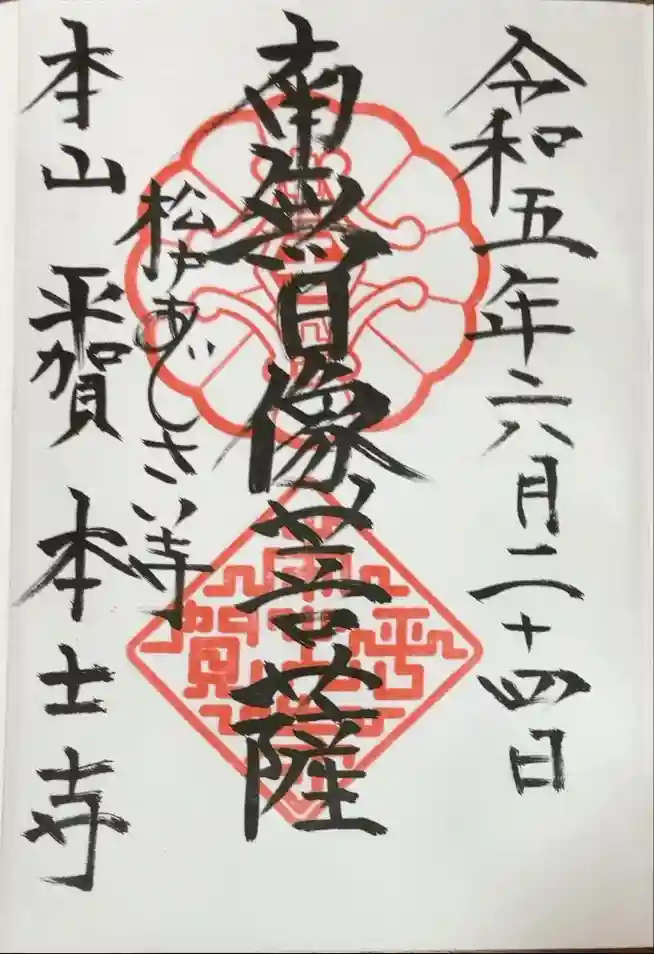 令和五年六月二十四日
南無日像菩薩
松戸あじさい寺
本山 平賀 本土寺